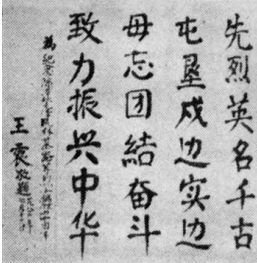 先烈英名千古
屯垦戍边实边
毋忘团結奋斗
致力振兴中华
為纪念
王震敬题